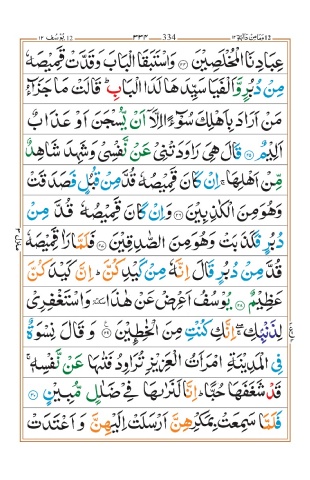 ١٢ يُوسُف 12 ٣٣٤ 334
عِبَادِنَا الْمُخْلَصِيْنَ ﴿٢٤﴾ وَاسْتَبَقَا الْبَابَ وَقَدَّتْ قَمِيْصَهٗ
مِنْ دُبُرٍ وَّاَلْفَيَا سَيِّدَهَا لَدَا الْبَابِ ؕ قَالَتْ مَا جَزَآءُ
مَنْ اَرَادَ بِاَهْلِكَ سُوْٓءًا اِلَّاۤ اَنْ يُّسْجَنَ اَوْ عَذَابٌ
اَلِيْمٌ ﴿٢٥﴾ قَالَ هِىَ رَاوَدَتْنِىْ عَنْ نَّفْسِىْ وَشَهِدَ شَاهِدٌ
مِّنْ اَهْلِهَا ۚ اِنْ كَانَ قَمِيْصُهٗ قُدَّ مِنْ قُبُلٍ فَصَدَقَتْ
وَهُوَ مِنَ الْكٰذِبِيْنَ ﴿٢٦﴾ وَاِنْ كَانَ قَمِيْصُهٗ قُدَّ مِنْ
دُبُرٍ فَكَذَبَتْ وَهُوَ مِنَ الصّٰدِقِيْنَ ﴿٢٧﴾ فَلَمَّا رَاٰ قَمِيْصَهٗ
قُدَّ مِنْ دُبُرٍ قَالَ اِنَّهٗ مِنْ كَيْدِكُنَّ ؕ اِنَّ كَيْدَكُنَّ
عَظِيْمٌ ﴿٢٨﴾ يُوْسُفُ اَعْرِضْ عَنْ هٰذَا ٚ وَاسْتَغْفِرِىْ
لِذَنْۢبِكِ ۖۚ اِنَّكِ كُنْتِ مِنَ الْخٰطِـِٕيْنَ ﴿٢٩﴾ وَقَالَ نِسْوَةٌ
فِى الْمَدِيْنَةِ امْرَاَتُ الْعَزِيْزِ تُرَاوِدُ فَتٰٮهَا عَنْ نَّفْسِهٖ ۚ
قَدْ شَغَفَهَا حُبًّا ؕ اِنَّا لَنَرٰٮهَا فِىْ ضَلٰلٍ مُّبِيْنٍ ﴿٣٠﴾
فَلَمَّا سَمِعَتْ بِمَكْرِهِنَّ اَرْسَلَتْ اِلَيْهِنَّ وَاَعْتَدَتْ